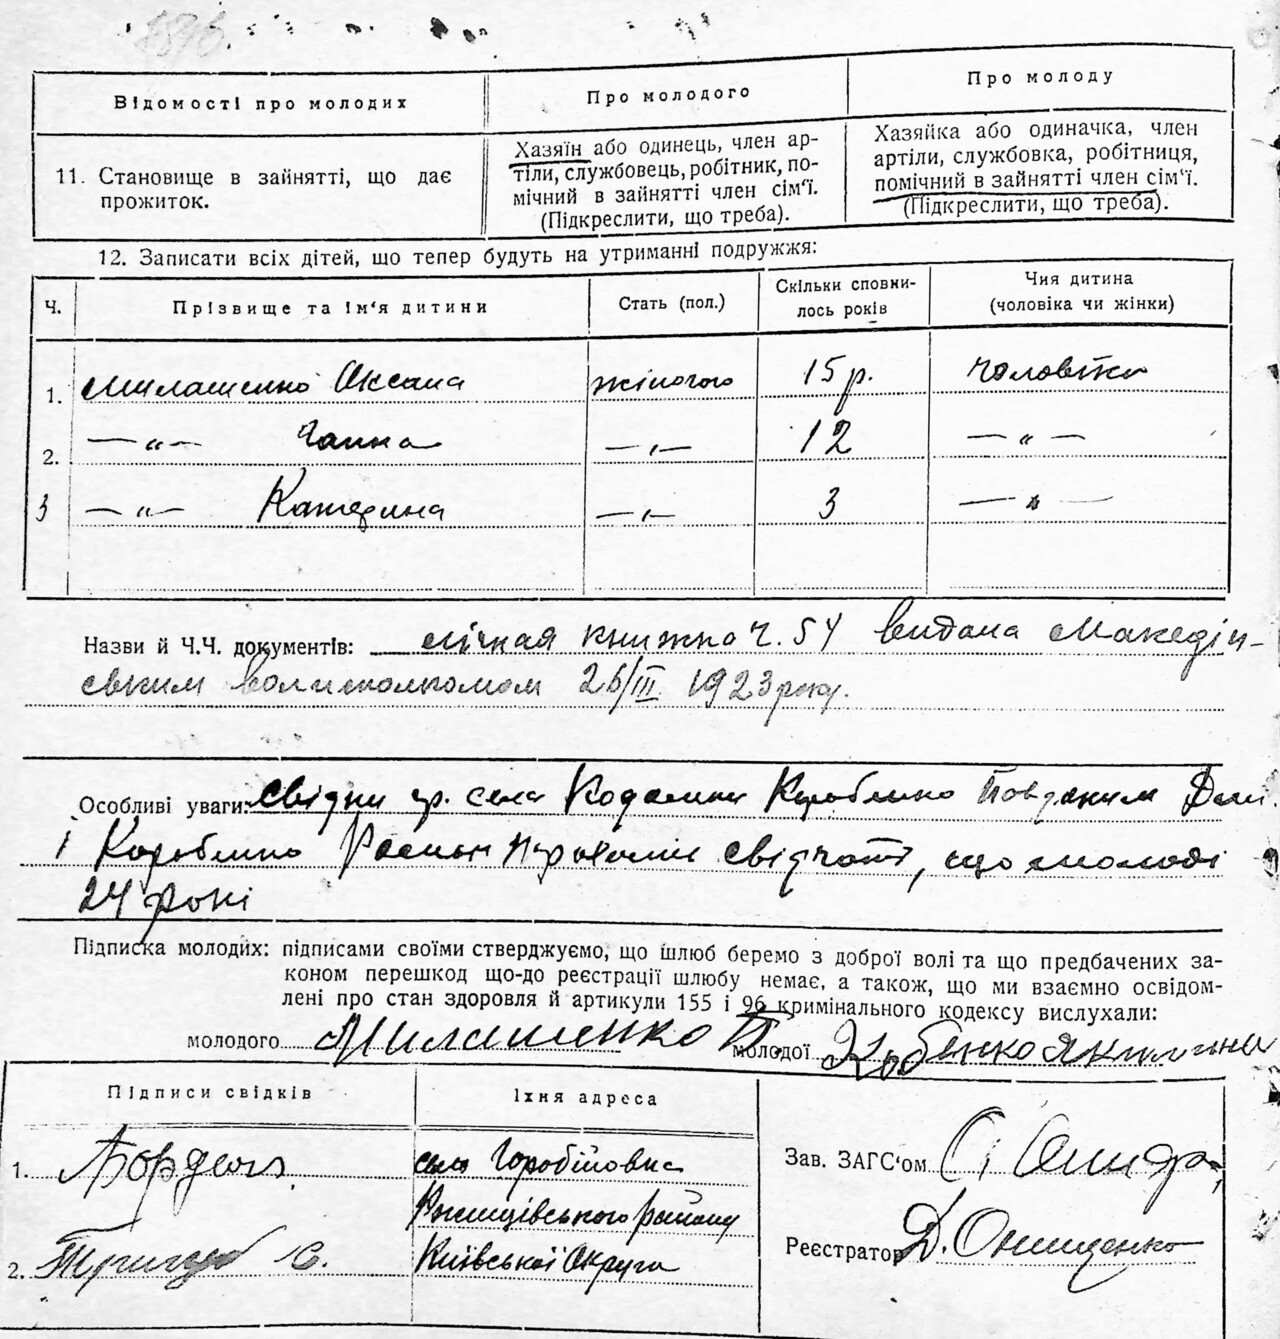 Відомості про молодих
Про молодого
Про молоду
11. Становище в зайнятті, що дає
прожиток.
Хазяїн або одинець, член ар-
тіли, службовець, робітник, по-
мічний в зайнятті член сім'ї.
(Підкреслити, що треба).
Хазяйка або одиначка, член
артіли, службовка, робітниця,
помічний в зайнятті член сім'ї.
(Підкреслити, що треба).
12. Записати всіх дітей, що тепер будуть на утриманні подружжя:
Ч.
Прізвище та ім'я дитини
Стать (пол.)
Скільки сповни-
лось років
Чия дитина
(чоловіка чи жінки)
1. Милашенко Оксана жіночого 15 р. чоловіка
2. —„— Ганна —„— 12 —„—
3 —„— Катерина —„— 3 —„—
Назви й Ч.Ч. документів: лічная книжка ч. 54 видана Македін-
ським волисполкомом 26/III 1923 року.
Особливі уваги: свідки гр. села Коробенко
і Коробенко свідчать, що молоді
24 років
Підписка молодих: підписами своїми стверджуємо, що шлюб беремо з доброї волі та що предбачених за-
коном перешкод що-до реєстрації шлюбу немає, а також, що ми взаємно освідом-
лені про стан здоровля й артикули 155 і 96 кримінального кодексу вислухали:
молодого Милашенко П. молодої
Підписи свідків
Їхня адреса
1.
село Горобіївка
Ржищівського району
2.
Київської Округи
Зав. ЗАГС'ом
Реєстратор Д. Онищенко